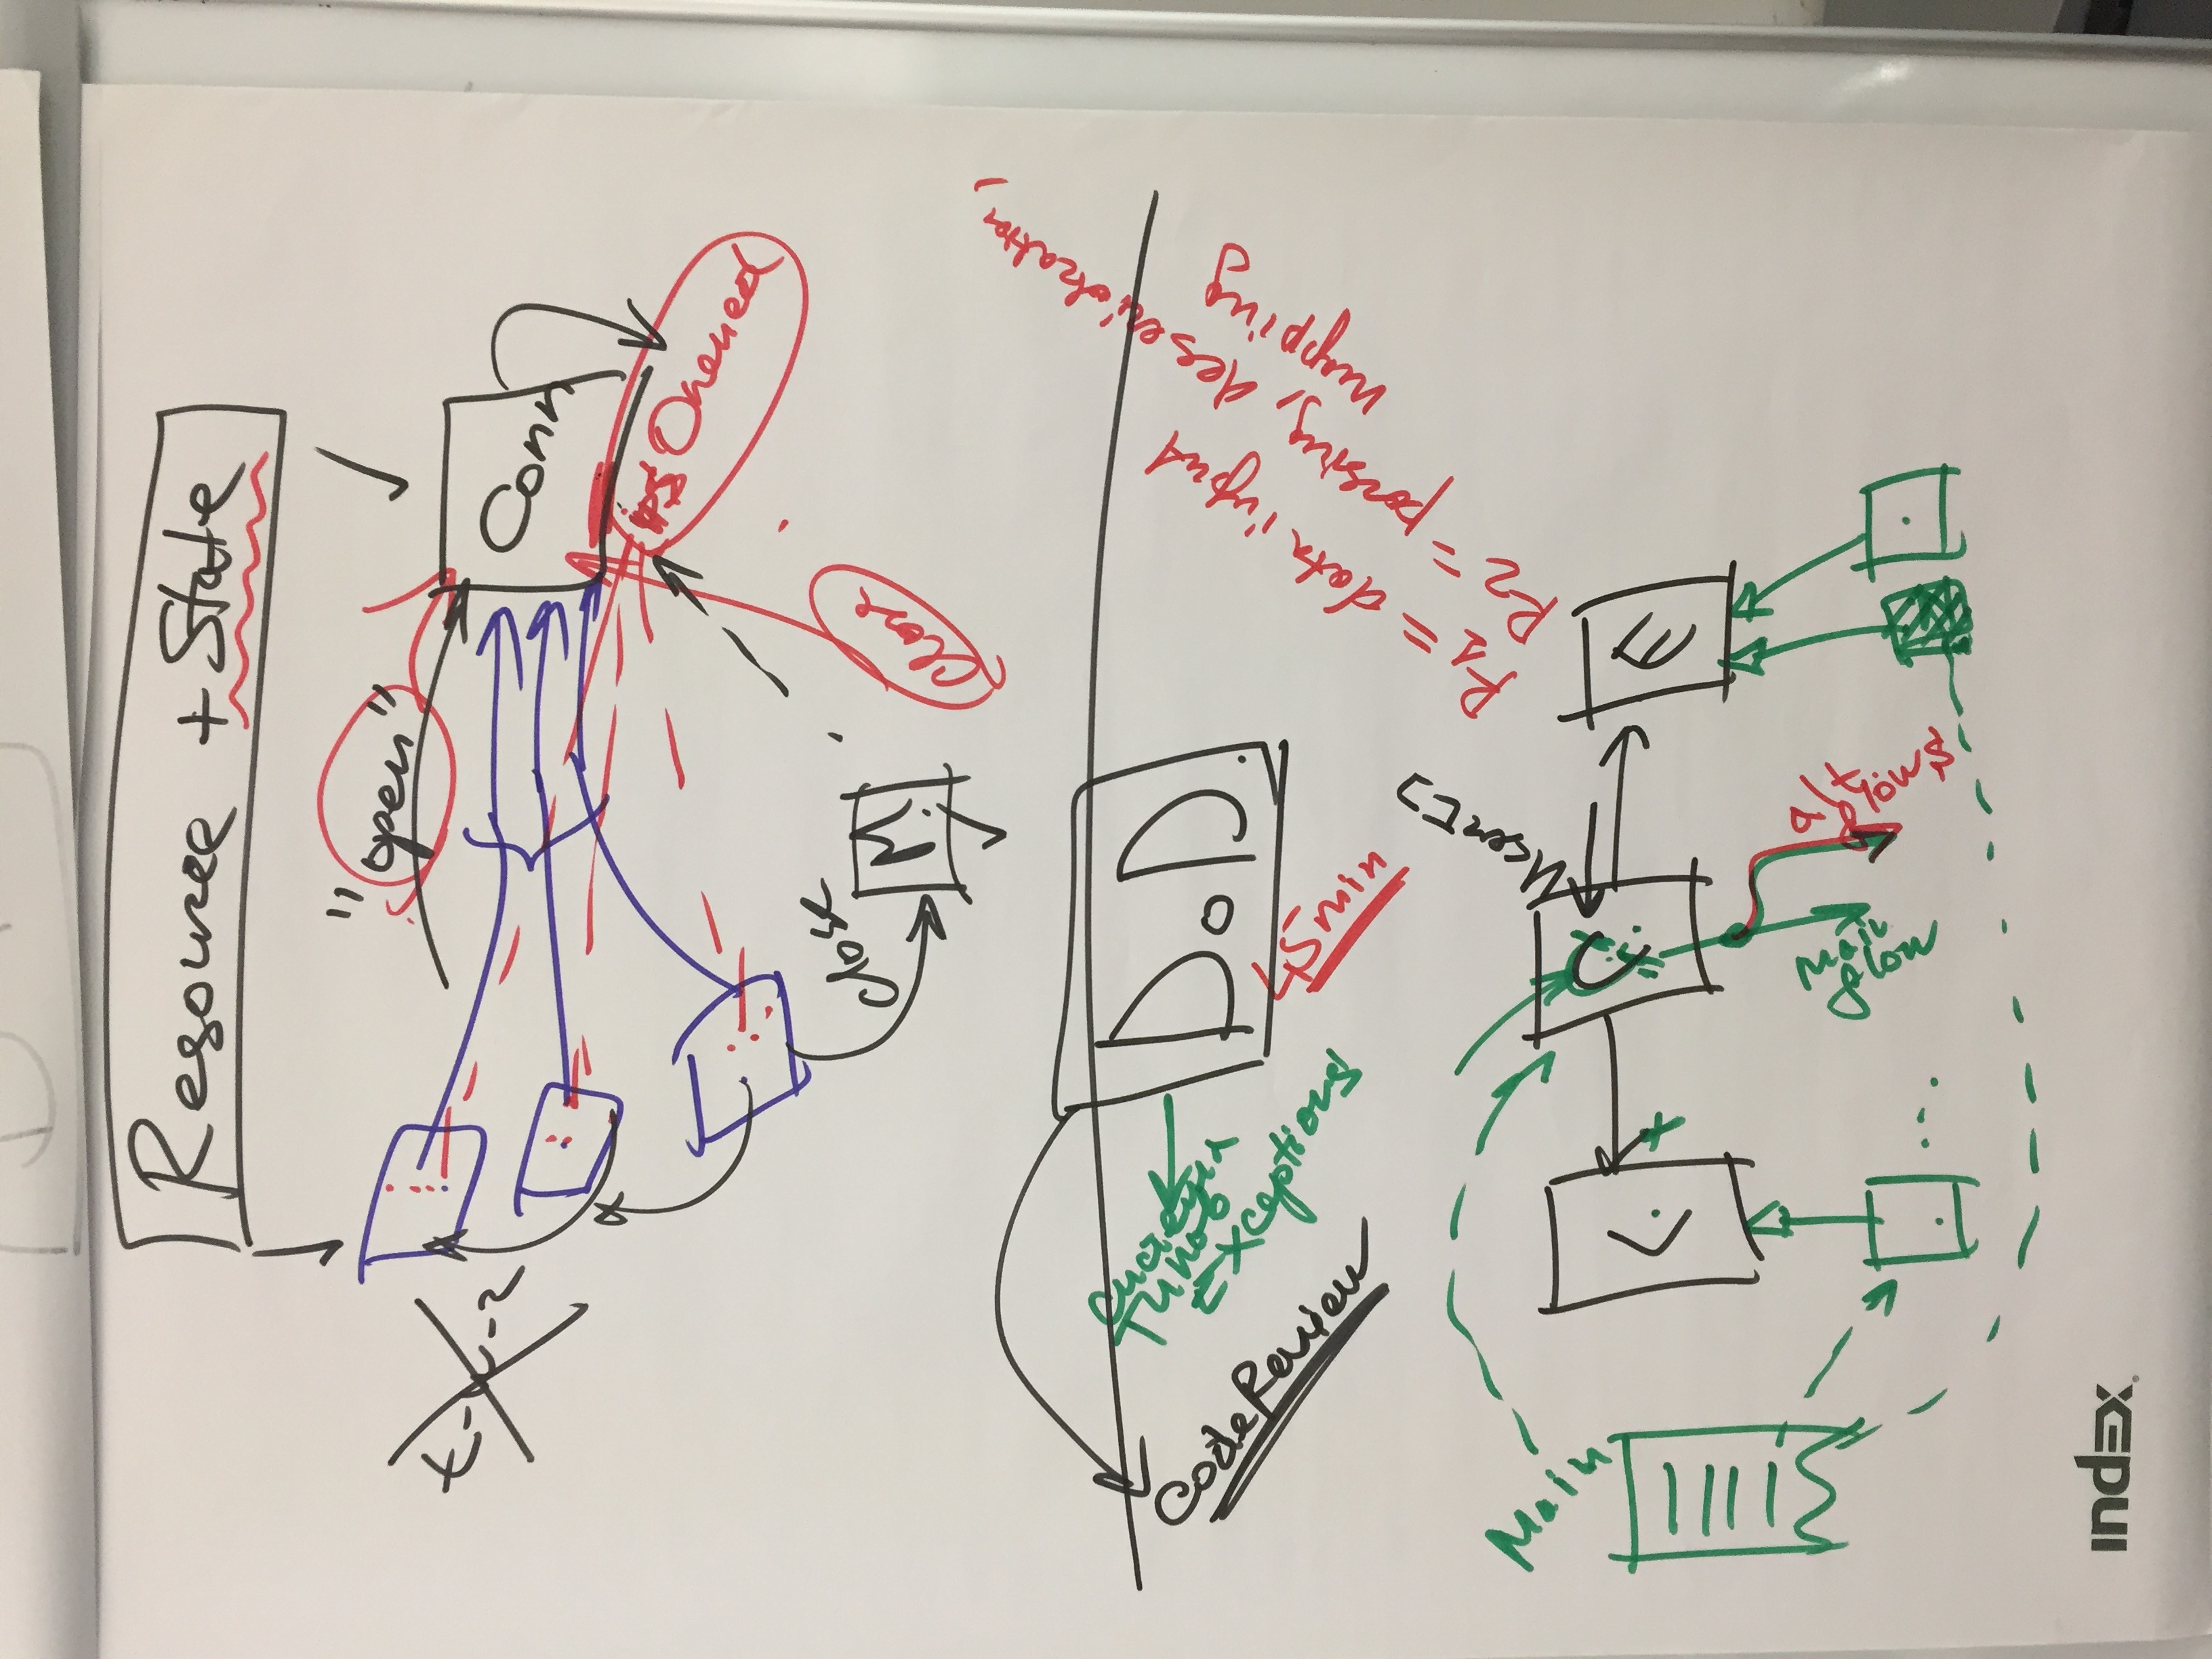 Resource + State
"open"
Conn
t-
-2
is Opened
close
M.
close
D.o.D.
Code Review
Exceptions
45 min
R1 = data input
R2 = parsing, deserialization,
mapping
User[]
Main
L.
C.
E
main
flow
alt
flows
index